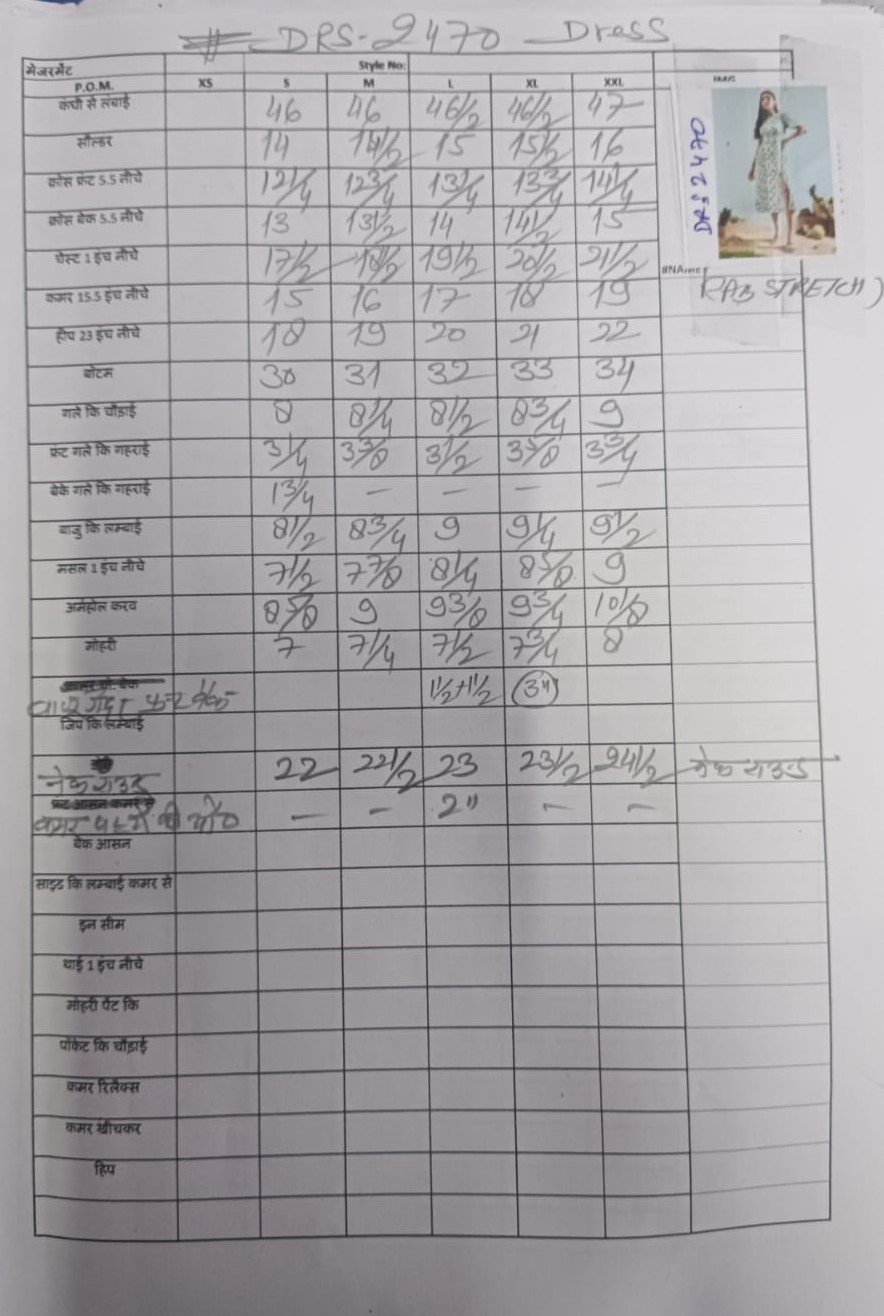 # DRS-2470 Dress
मेजरमेंट Style No:
P.O.M. XS S M L XL XXL
कंधी से लंबाई 46 46 46 1/2 46 1/2 47
सोल्डर 14 14 1/2 15 15 1/2 16
DRS 2470
क्रोस फ्रंट 5.5 नीचे 12 1/4 12 3/4 13 1/4 13 3/4 14 1/4
क्रोस बेक 5.5 नीचे 13 13 1/2 14 14 1/2 15
चेस्ट 1 इंच नीचे 17 1/2 18 1/2 19 1/2 20 1/2 21 1/2
#NAme
कमर 15.5 इंच नीचे 15 16 17 18 19
STRETCH)
हीप 23 इंच नीचे 18 19 20 21 22
बोटम 30 31 32 33 34
गले कि चौड़ाई 8 8 1/4 8 1/2 8 3/4 9
फ्रंट गले कि गहराई 3 1/4 3 3/8 3 1/2 3 5/8 3 3/4
बेके गले कि गहराई 1 3/4 — — — —
बाजु कि लम्बाई 8 1/2 8 3/4 9 9 1/4 9 1/2
मसल 1 इंच नीचे 7 1/2 7 7/8 8 1/4 8 5/8 9
अर्महोल करव 8 5/8 9 9 3/8 9 3/4 10 1/8
मोहरी 7 7 1/4 7 1/2 7 3/4 8
1 1/2 + 1 1/2 (3")
जिप कि लम्बाई
नेक राउंड 22 22 1/2 23 23 1/2 24 1/2 नेक राउंड
कमर — — 2" — —
बेक आसन
साइड कि लम्बाई कमर से
इन सीम
थाई 1 इंच नीचे
मोहरी पेंट कि
पोकेट कि चौड़ाई
कमर रिलेक्स
कमर खीचकर
हिप